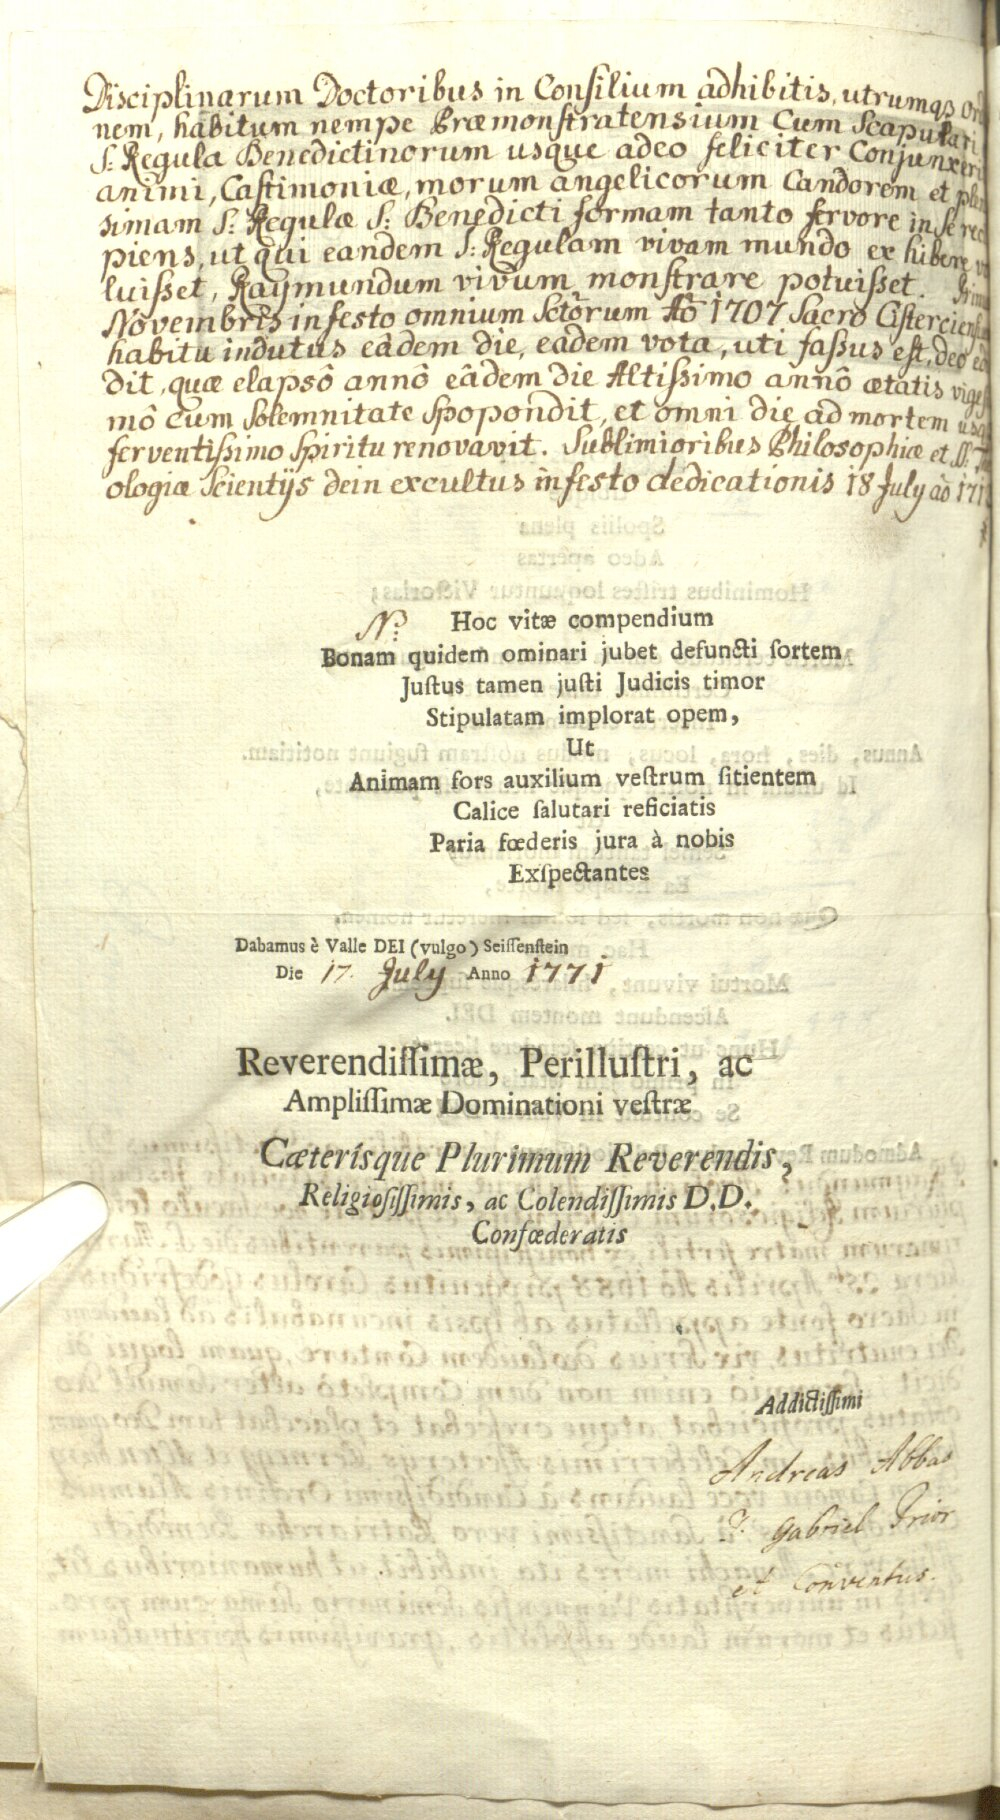 Disciplinarum Doctoribus in Consilium adhibitis, utrumqȝ Ord
nem, habitum nempe Præmonstratensium Cum Scapulari
S: Regula Benedictinorum usque adeo feliciter Conjunxeri
animi, Castimoniæ, morum angelicorum Candorem et ple
simam S: Regulæ S: Benedicti formam tanto fervore in se rec
piens, ut qui eandem S: Regulam vivam mundo exhibere vo
luisset, Raymundum vivum monstrare potuisset. Prima
Novembris in festo omnium Sctorum Ao 1707 Sacro Cisterciensi
habitu indutus eâdem die, eadem vota, uti fassus est, deo ed
dit, quæ elapsô annô eâdem die Altissimo annô ætatis viges
mô cum Solemnitate Spopondit, et omni die ad mortem usq
ferventissimo Spiritu renovavit. Sublimioribus Philosophiæ et SS: The
ologiæ Scientijs dein excultus in festo dedicationis 18 July aô 171
N:
Hoc vitæ compendium
Bonam quidem ominari jubet defuncti ſortem
Juſtus tamen juſti Judicis timor
Stipulatam implorat opem,
Ut
Animam fors auxilium veſtrum ſitientem
Calice ſalutari reficiatis
Paria fœderis jura à nobis
Exſpectantes
Dabamus è Valle DEI (vulgo) Seiſſenſtein
Die 17. July Anno 1771
Reverendiſſimæ, Perilluſtri, ac
Ampliſſimæ Dominationi veſtræ
Cæterisque Plurimum Reverendis,
Religioſiſſimis, ac Colendiſſimis D.D.
Confœderatis
Addictiſſimi
Andreas Abbas
P. Gabriel Prior
et Conventus.